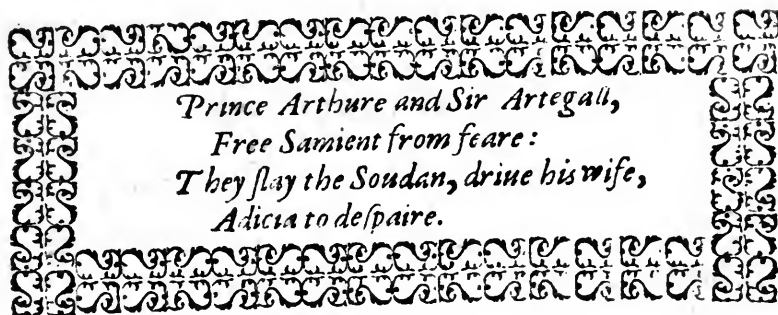 Prince Arthure and Sir Artegall,
Free Samient from feare:
They ſlay the Soudan, driue his wife,
Adicia to deſpaire.